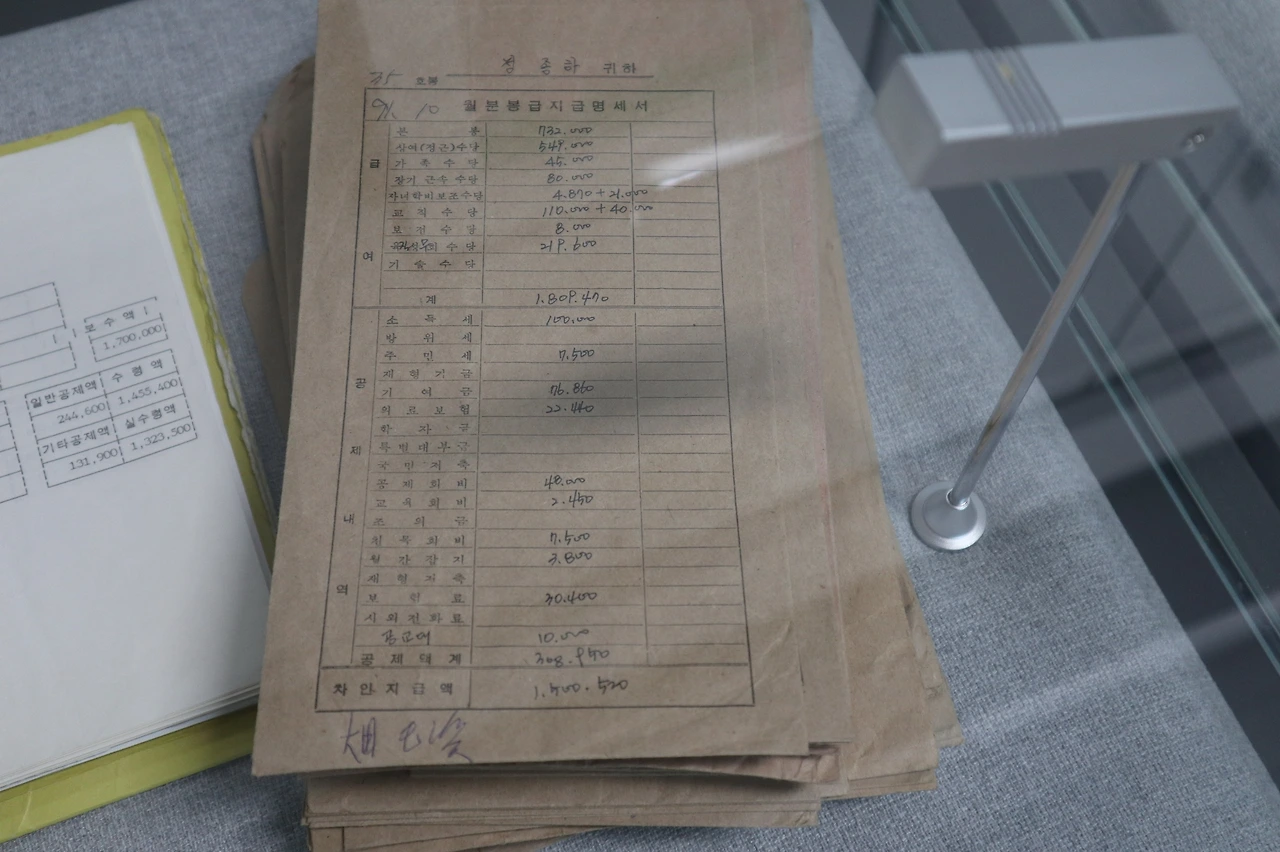 보 수 액
1,700,000
일반공제액 수 령 액
244,600 1,455,400
기타공제액 실수령액
131,900 1,323,500
정 종 하 귀하
35 호봉
91. 10 월분봉급지급명세서
급 여
본 봉 732.000
상여(정근)수당 549.000
가 족 수 당 45.000
장기 근속 수당 80.000
자녀학비보조수당 4.870 + 21.000
교 직 수 당 110.000 + 40.000
보 전 수 당 8.000
수 당 219.600
기 술 수 당
계 1.809.470
공 제 내 역
소 득 세 100.000
방 위 세
주 민 세 7.500
재 형 기 금
기 여 금 76.860
의 료 보 험 22.440
학 자 금
특 별 대 부 금
국 민 저 축
공 제 회 비 48.000
교 육 회 비 2.450
조 의 금
친 목 회 비 7.500
월 간 잡 지 3.800
재 형 저 축
보 험 료 30.400
시 외 전 화 료
10.000
공 제 액 계 308.950
차 인 지 급 액 1.500.520